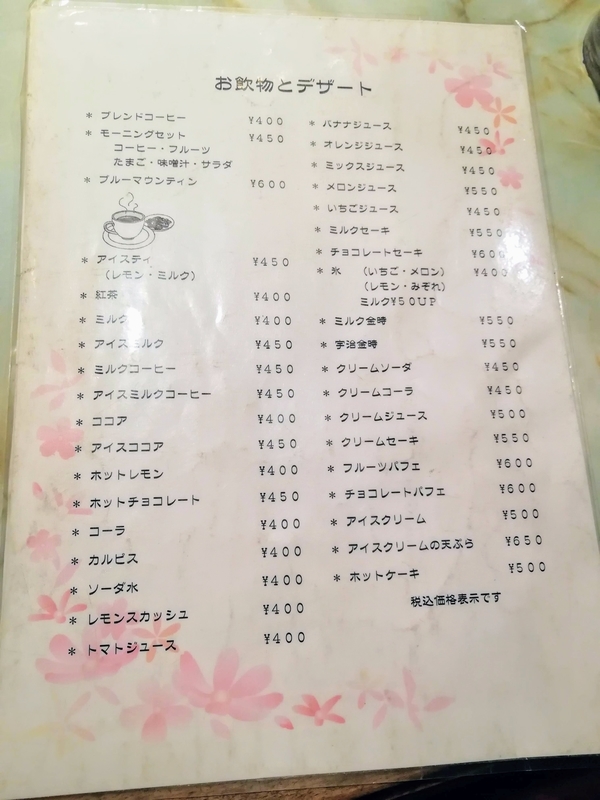 お飲物とデザート
* ブレンドコーヒー ¥400
* モーニングセット ¥450
コーヒー・フルーツ
たまご・味噌汁・サラダ
* ブルーマウンテイン ¥600
* アイステイ ¥450
(レモン・ミルク)
* 紅茶 ¥400
* ミルク ¥400
* アイスミルク ¥450
* ミルクコーヒー ¥450
* アイスミルクコーヒー ¥450
* ココア ¥400
* アイスココア ¥450
* ホットレモン ¥400
* ホットチョコレート ¥450
* コーラ ¥400
* カルピス ¥400
* ソーダ水 ¥400
* レモンスカッシュ ¥400
* トマトジュース ¥400
* バナナジュース ¥450
* オレンジジュース ¥450
* ミックスジュース ¥450
* メロンジュース ¥550
* いちごジュース ¥450
* ミルクセーキ ¥550
* チョコレートセーキ ¥600
* 氷 (いちご・メロン) ¥400
(レモン・みぞれ)
ミルク¥50UP
* ミルク金時 ¥550
* 宇治金時 ¥550
* クリームソーダ ¥450
* クリームコーラ ¥450
* クリームジュース ¥500
* クリームセーキ ¥550
* フルーツパフェ ¥600
* チョコレートパフェ ¥600
* アイスクリーム ¥500
* アイスクリームの天ぷら ¥650
* ホットケーキ ¥500
税込価格表示です